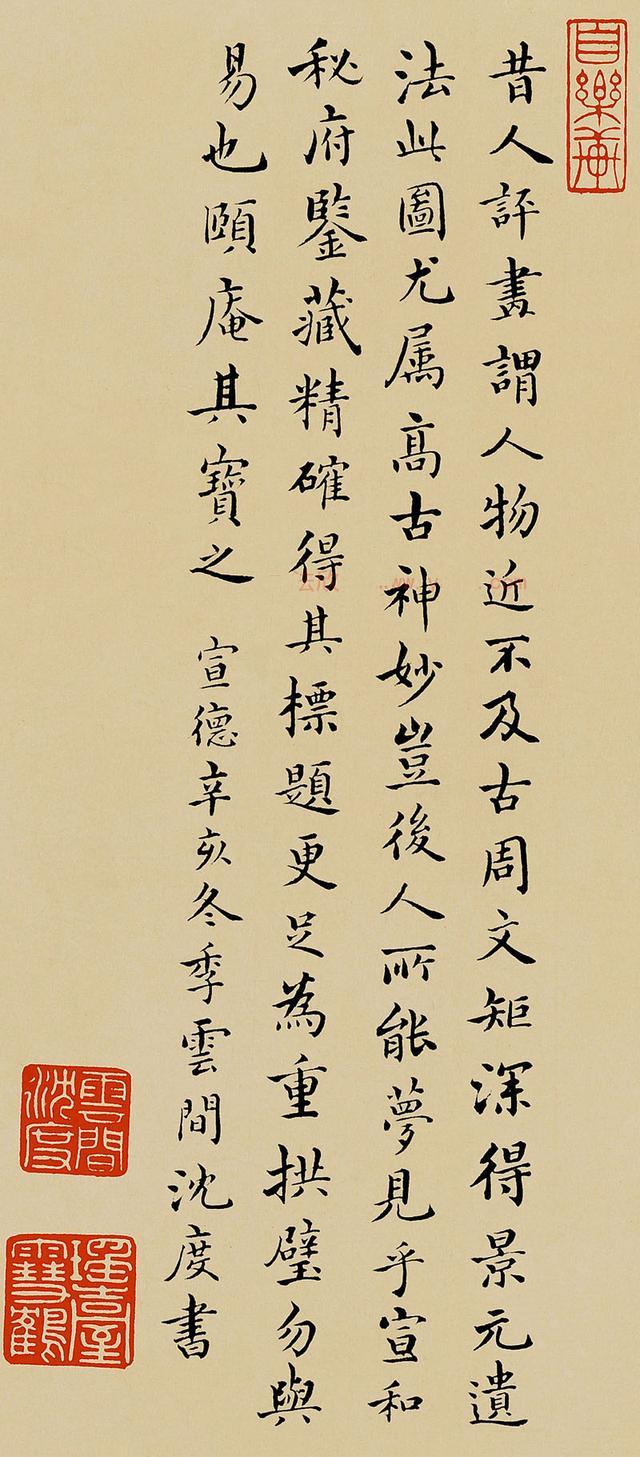 自樂庵
昔人評畫謂人物近不及古周文矩深得景元遺
法此圖尤属髙古神妙豈後人所能夢見乎宣和
秘府鑒藏精確得其標題更足為重拱璧勿與
易也頤庵其寶之 宣德辛亥冬季雲間沈度書
雲間沈度